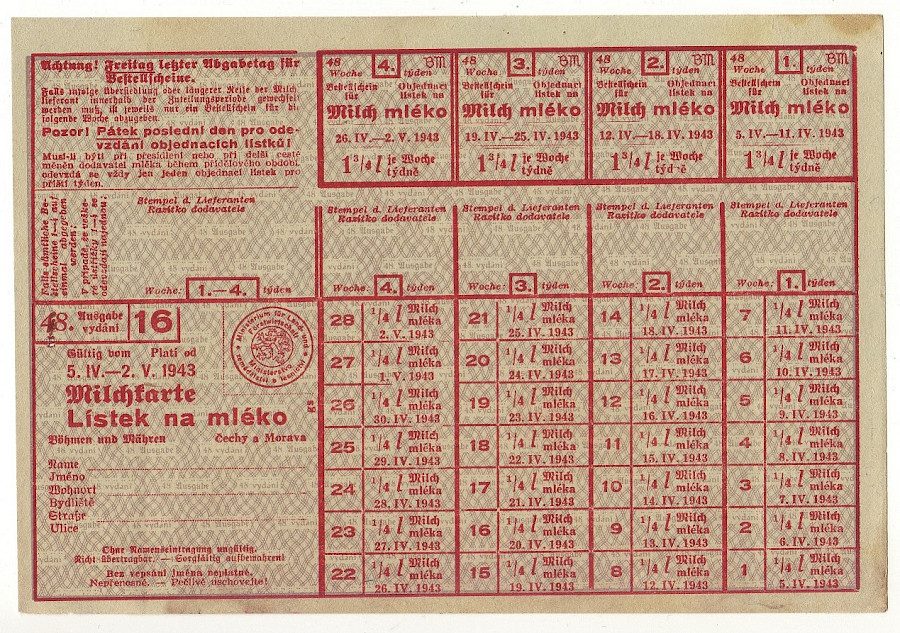 Achtung! Freitag letzter Abgabetag für
Bestellscheine.
Falls infolge Übersiedlung oder längerer Reise der Milch
lieferant innerhalb der Zuteilungsperiode gewechselt
werden muß, ist jeweils nur ein Bestellschein für
folgende Woche abzugeben.
Pozor! Pátek poslední den pro ode-
vzdání objednacích lístků!
Musí-li býti při přesídlení nebo při delší cestě
měněn dodavatel mléka během přídělového období,
odevzdá se vždy jen jeden objednací lístek pro
příští týden.
48 4. BM
Woche týden
Bestellschein Objednací
für lístek na
Milch mléko
26. IV.—2. V. 1943
1 3/4 l je Woche
týdně
48 3. BM
Woche týden
Bestellschein Objednací
für lístek na
Milch mléko
19. IV.—25. IV. 1943
1 3/4 l je Woche
týdně
48 2. BM
Woche týden
Bestellschein Objednací
für lístek na
Milch mléko
12. IV.—18. IV. 1943
1 3/4 l je Woche
týdně
48 1. BM
Woche týden
Bestellschein Objednací
für lístek na
Milch mléko
5. IV.—11. IV. 1943
1 3/4 l je Woche
týdně
Falls sämtliche Be-
stellscheine 1—4 auf
einmal abgegeben
werden:
V případě, že veške-
ré ústřižky 1—4 se
odevzdají najednou:
Stempel d. Lieferanten
Razítko dodavatele
Woche: 1.—4. týden
Stempel d. Lieferanten
Razítko dodavatele
Woche: 4. týden
Stempel d. Lieferanten
Razítko dodavatele
Woche: 3. týden
Stempel d. Lieferanten
Razítko dodavatele
Woche: 2. týden
Stempel d. Lieferanten
Razítko dodavatele
Woche: 1. týden
48. Ausgabe
vydání 16
Gültig vom Platí od
5. IV.—2. V. 1943
Milchkarte
Lístek na mléko
Böhmen und Mähren Čechy a Morava
Name
Jméno
Wohnort
Bydliště
Straße
Ulice
Ohne Namenseintragung ungültig.
Nicht übertragbar. — Sorgfältig aufbewahren!
Bez vepsání jména neplatné.
Nepřenosné. — Pečlivě uschovejte!
28 1/4 l Milch
mléka
2. V. 1943
21 1/4 l Milch
mléka
25. IV. 1943
14 1/4 l Milch
mléka
18. IV. 1943
7 1/4 l Milch
mléka
11. IV. 1943
27 1/4 l Milch
mléka
1. V. 1943
20 1/4 l Milch
mléka
24. IV. 1943
13 1/4 l Milch
mléka
17. IV. 1943
6 1/4 l Milch
mléka
10. IV. 1943
26 1/4 l Milch
mléka
30. IV. 1943
19 1/4 l Milch
mléka
23. IV. 1943
12 1/4 l Milch
mléka
16. IV. 1943
5 1/4 l Milch
mléka
9. IV. 1943
25 1/4 l Milch
mléka
29. IV. 1943
18 1/4 l Milch
mléka
22. IV. 1943
11 1/4 l Milch
mléka
15. IV. 1943
4 1/4 l Milch
mléka
8. IV. 1943
24 1/4 l Milch
mléka
28. IV. 1943
17 1/4 l Milch
mléka
21. IV. 1943
10 1/4 l Milch
mléka
14. IV. 1943
3 1/4 l Milch
mléka
7. IV. 1943
23 1/4 l Milch
mléka
27. IV. 1943
16 1/4 l Milch
mléka
20. IV. 1943
9 1/4 l Milch
mléka
13. IV. 1943
2 1/4 l Milch
mléka
6. IV. 1943
22 1/4 l Milch
mléka
26. IV. 1943
15 1/4 l Milch
mléka
19. IV. 1943
8 1/4 l Milch
mléka
12. IV. 1943
1 1/4 l Milch
mléka
5. IV. 1943